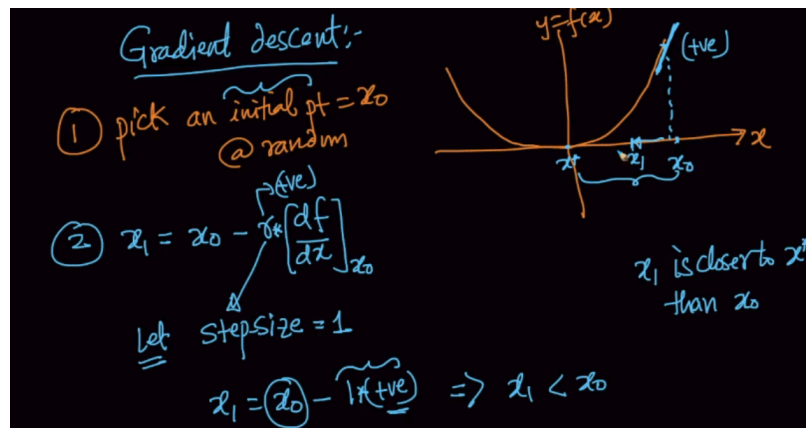 Gradient descent:-
① pick an initial pt = x₀
@ random
(+ve)
② x₁ = x₀ - r* [df/dx]x₀
Let step-size = 1
x₁ = x₀ - 1*(+ve) => x₁ < x₀
y=f(x)
(+ve)
x* x₁ x₀ x
x₁ is closer to x*
than x₀